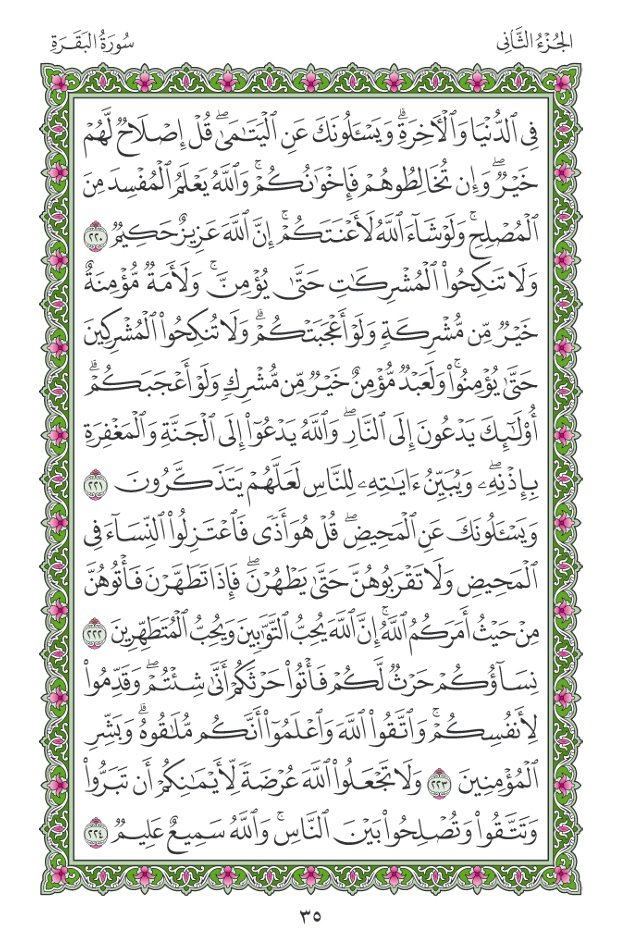 الجُزْءُ الثَّانِي
سُورَةُ البَقَرَةِ
فِي ٱلدُّنۡيَا وَٱلۡأٓخِرَةِۗ وَيَسۡـَٔلُونَكَ عَنِ ٱلۡيَتَٰمَىٰۖ قُلۡ إِصۡلَاحٞ لَّهُمۡ
خَيۡرٞۖ وَإِن تُخَالِطُوهُمۡ فَإِخۡوَٰنُكُمۡۚ وَٱللَّهُ يَعۡلَمُ ٱلۡمُفۡسِدَ مِنَ
ٱلۡمُصۡلِحِۚ وَلَوۡ شَآءَ ٱللَّهُ لَأَعۡنَتَكُمۡۚ إِنَّ ٱللَّهَ عَزِيزٌ حَكِيمٞ ٢٢٠
وَلَا تَنكِحُواْ ٱلۡمُشۡرِكَٰتِ حَتَّىٰ يُؤۡمِنَّۚ وَلَأَمَةٞ مُّؤۡمِنَةٌ
خَيۡرٞ مِّن مُّشۡرِكَةٖ وَلَوۡ أَعۡجَبَتۡكُمۡۗ وَلَا تُنكِحُواْ ٱلۡمُشۡرِكِينَ
حَتَّىٰ يُؤۡمِنُواْۚ وَلَعَبۡدٞ مُّؤۡمِنٌ خَيۡرٞ مِّن مُّشۡرِكٖ وَلَوۡ أَعۡجَبَكُمۡۗ
أُوْلَٰٓئِكَ يَدۡعُونَ إِلَى ٱلنَّارِۖ وَٱللَّهُ يَدۡعُوٓاْ إِلَى ٱلۡجَنَّةِ وَٱلۡمَغۡفِرَةِ
بِإِذۡنِهِۦۖ وَيُبَيِّنُ ءَايَٰتِهِۦ لِلنَّاسِ لَعَلَّهُمۡ يَتَذَكَّرُونَ ٢٢١
وَيَسۡـَٔلُونَكَ عَنِ ٱلۡمَحِيضِۖ قُلۡ هُوَ أَذٗى فَٱعۡتَزِلُواْ ٱلنِّسَآءَ فِي
ٱلۡمَحِيضِ وَلَا تَقۡرَبُوهُنَّ حَتَّىٰ يَطۡهُرۡنَۖ فَإِذَا تَطَهَّرۡنَ فَأۡتُوهُنَّ
مِنۡ حَيۡثُ أَمَرَكُمُ ٱللَّهُۚ إِنَّ ٱللَّهَ يُحِبُّ ٱلتَّوَّٰبِينَ وَيُحِبُّ ٱلۡمُتَطَهِّرِينَ ٢٢٢
نِسَآؤُكُمۡ حَرۡثٞ لَّكُمۡ فَأۡتُواْ حَرۡثَكُمۡ أَنَّىٰ شِئۡتُمۡۖ وَقَدِّمُواْ
لِأَنفُسِكُمۡۚ وَٱتَّقُواْ ٱللَّهَ وَٱعۡلَمُوٓاْ أَنَّكُم مُّلَٰقُوهُۗ وَبَشِّرِ
ٱلۡمُؤۡمِنِينَ ٢٢٣ وَلَا تَجۡعَلُواْ ٱللَّهَ عُرۡضَةٗ لِّأَيۡمَٰنِكُمۡ أَن تَبَرُّواْ
وَتَتَّقُواْ وَتُصۡلِحُواْ بَيۡنَ ٱلنَّاسِۚ وَٱللَّهُ سَمِيعٌ عَلِيمٞ ٢٢٤
٣٥